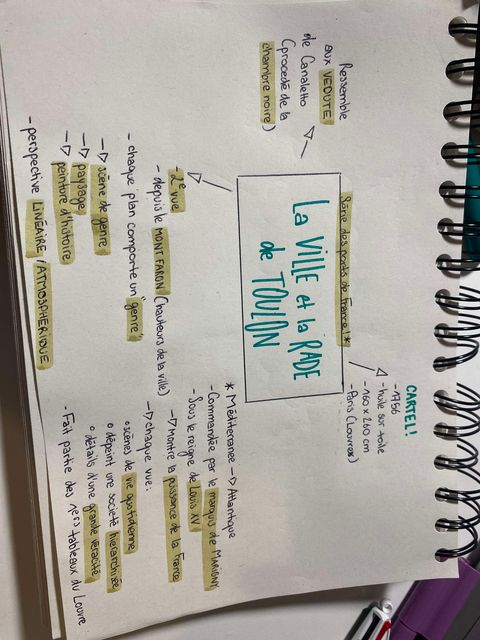 Série des ports de France!*
La VILLE et la RADE
de TOULON
CARTEL!
- 1756
- huile sur toile
- 160 x 260 cm
- Paris (Louvres)
Ressemble
aux VEDUTE
de Canaletto
(procédé de la
chambre noire)
- 2e vue
- depuis le MONT FARON (hauteurs de la ville)
- chaque plan comporte un "genre"
→ scène de genre
→ paysage
→ peinture d'histoire
- perspective LINÉAIRE / ATMOSPHÉRIQUE
* Méditerranée → Atlantique
- Commandée par le marquis de MARIGNY
- Sous le règne de Louis XV
→ montre la puissance de la France
→ chaque vue:
o scènes de vie quotidienne
o dépeint une société hiérarchisée
o détails d'une grande véracité
- Fait partie des 1ers tableaux du Louvre.